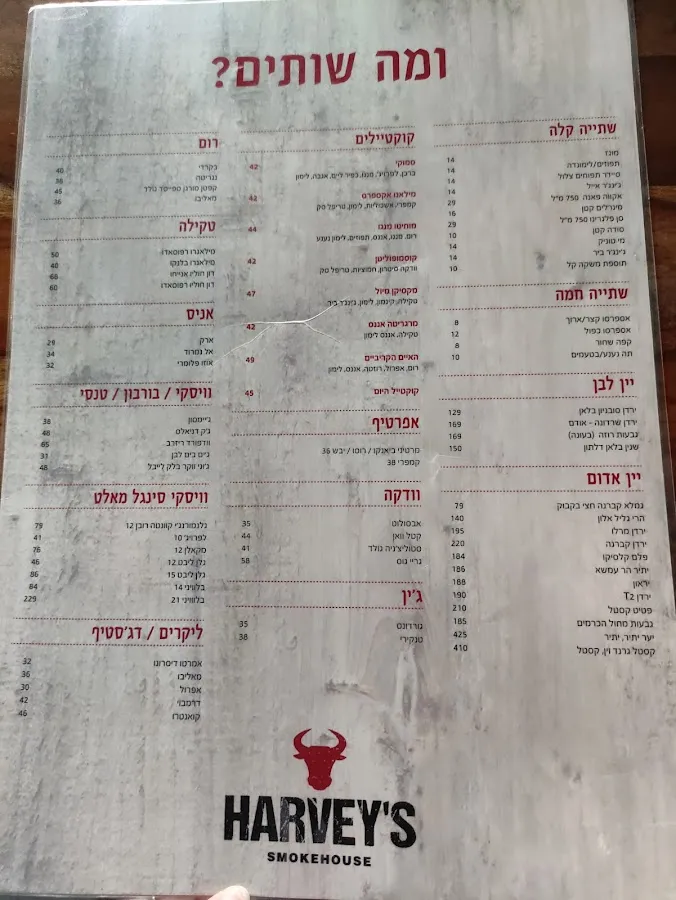 ומה שותים?
שתייה קלה
מונז
תפוזים/לימונדה 14
סיידר תפוחים צלול 14
ג'ינג'ר אייל 14
אקווה פאנה 750 מ"ל 29
מינרלים קטן
סן פלגרינו 750 מ"ל 29
סודה קטן 10
מי טוניק 14
ג'ינג'ר ביר 14
תוספת משקה קל 10
שתייה חמה
אספרסו קצר/ארוך 8
אספרסו כפול 12
קפה שחור 8
תה נענע/בטעמים 10
יין לבן
ירדן סוביניון בלאן 129
ירדן שרדונה - אודם 169
גבעות רוזה (בעונה) 169
שנין בלאן דלתון 150
יין אדום
גמלא קברנה חצי בקבוק 79
הרי גליל אלון 140
ירדן מרלו 195
ירדן קברנה 220
פלם קלסיקו 184
יתיר הר עמשא 186
יראון 188
ירדן T2 190
פטיט קסטל 210
גבעות מחול הכרמים 185
יער יתיר, יתיר 425
קסטל גרנד וין, קסטל 410
קוקטיילים
סמוקי 42
ברבן, לפרויג', מנגו, כפיר ליים, אננה, לימון
מילאנו אקספרס 42
קמפרי, אשכוליות, לימון, טריפל סק
מוחיטו מנגו 44
רום, מנגו, אננס, תפוזים, לימון נענע
קוסמופוליטן 42
וודקה סיטרון, חמוציות, טריפל סק
מקסיקן מיול 47
טקילה, קינמון, לימון, ג'ינג'ר ביר
מרגריטה אננס 42
טקילה, אננס לימון
האיים הקריביים 49
רום, אפרול, רוזטה, אננס, לימון
קוקטייל היום 45
אפרטיף
מרטיני ביאנקו / רוסו / יבש 36
קמפרי 38
וודקה
אבסולוט 35
קטל וואן 44
סטוליצ'ניה גולד 41
גריי גוס 58
ג'ין
גורדונס 35
טנקרי 38
רום
בקרדי 40
נגריטה 38
קפטן מורגן ספייסד גולד 45
מאליבו 36
טקילה
מילאגרו רפוסאדו 50
מילאגרו בלנקו 40
דון חוליו אנייחו 68
דון חוליו רפוסאדו 60
אניס
ארק 29
אל נמרוד 34
אוזו פלומרי 32
וויסקי / בורבון / טנסי
ג'יימסון 38
ג'ק דניאלס 48
וודפורד ריזרב 65
ג'ים בים לבן 37
ג'וני ווקר בלק לייבל 48
וויסקי סינגל מאלט
גלנמורנג'י קווינטה רובן 12 79
לפרויג 10 41
סקאלן 12 76
גלן ליבט 12 46
גלן ליבט 15 86
בלוויני 14 84
בלוויני 21 229
ליקרים / דג'סטיף
אמרטו דיסרונו 32
מאליבו 36
אפרול 30
דרמבוי 42
קואנטרו 46
HARVEY'S
SMOKEHOUSE